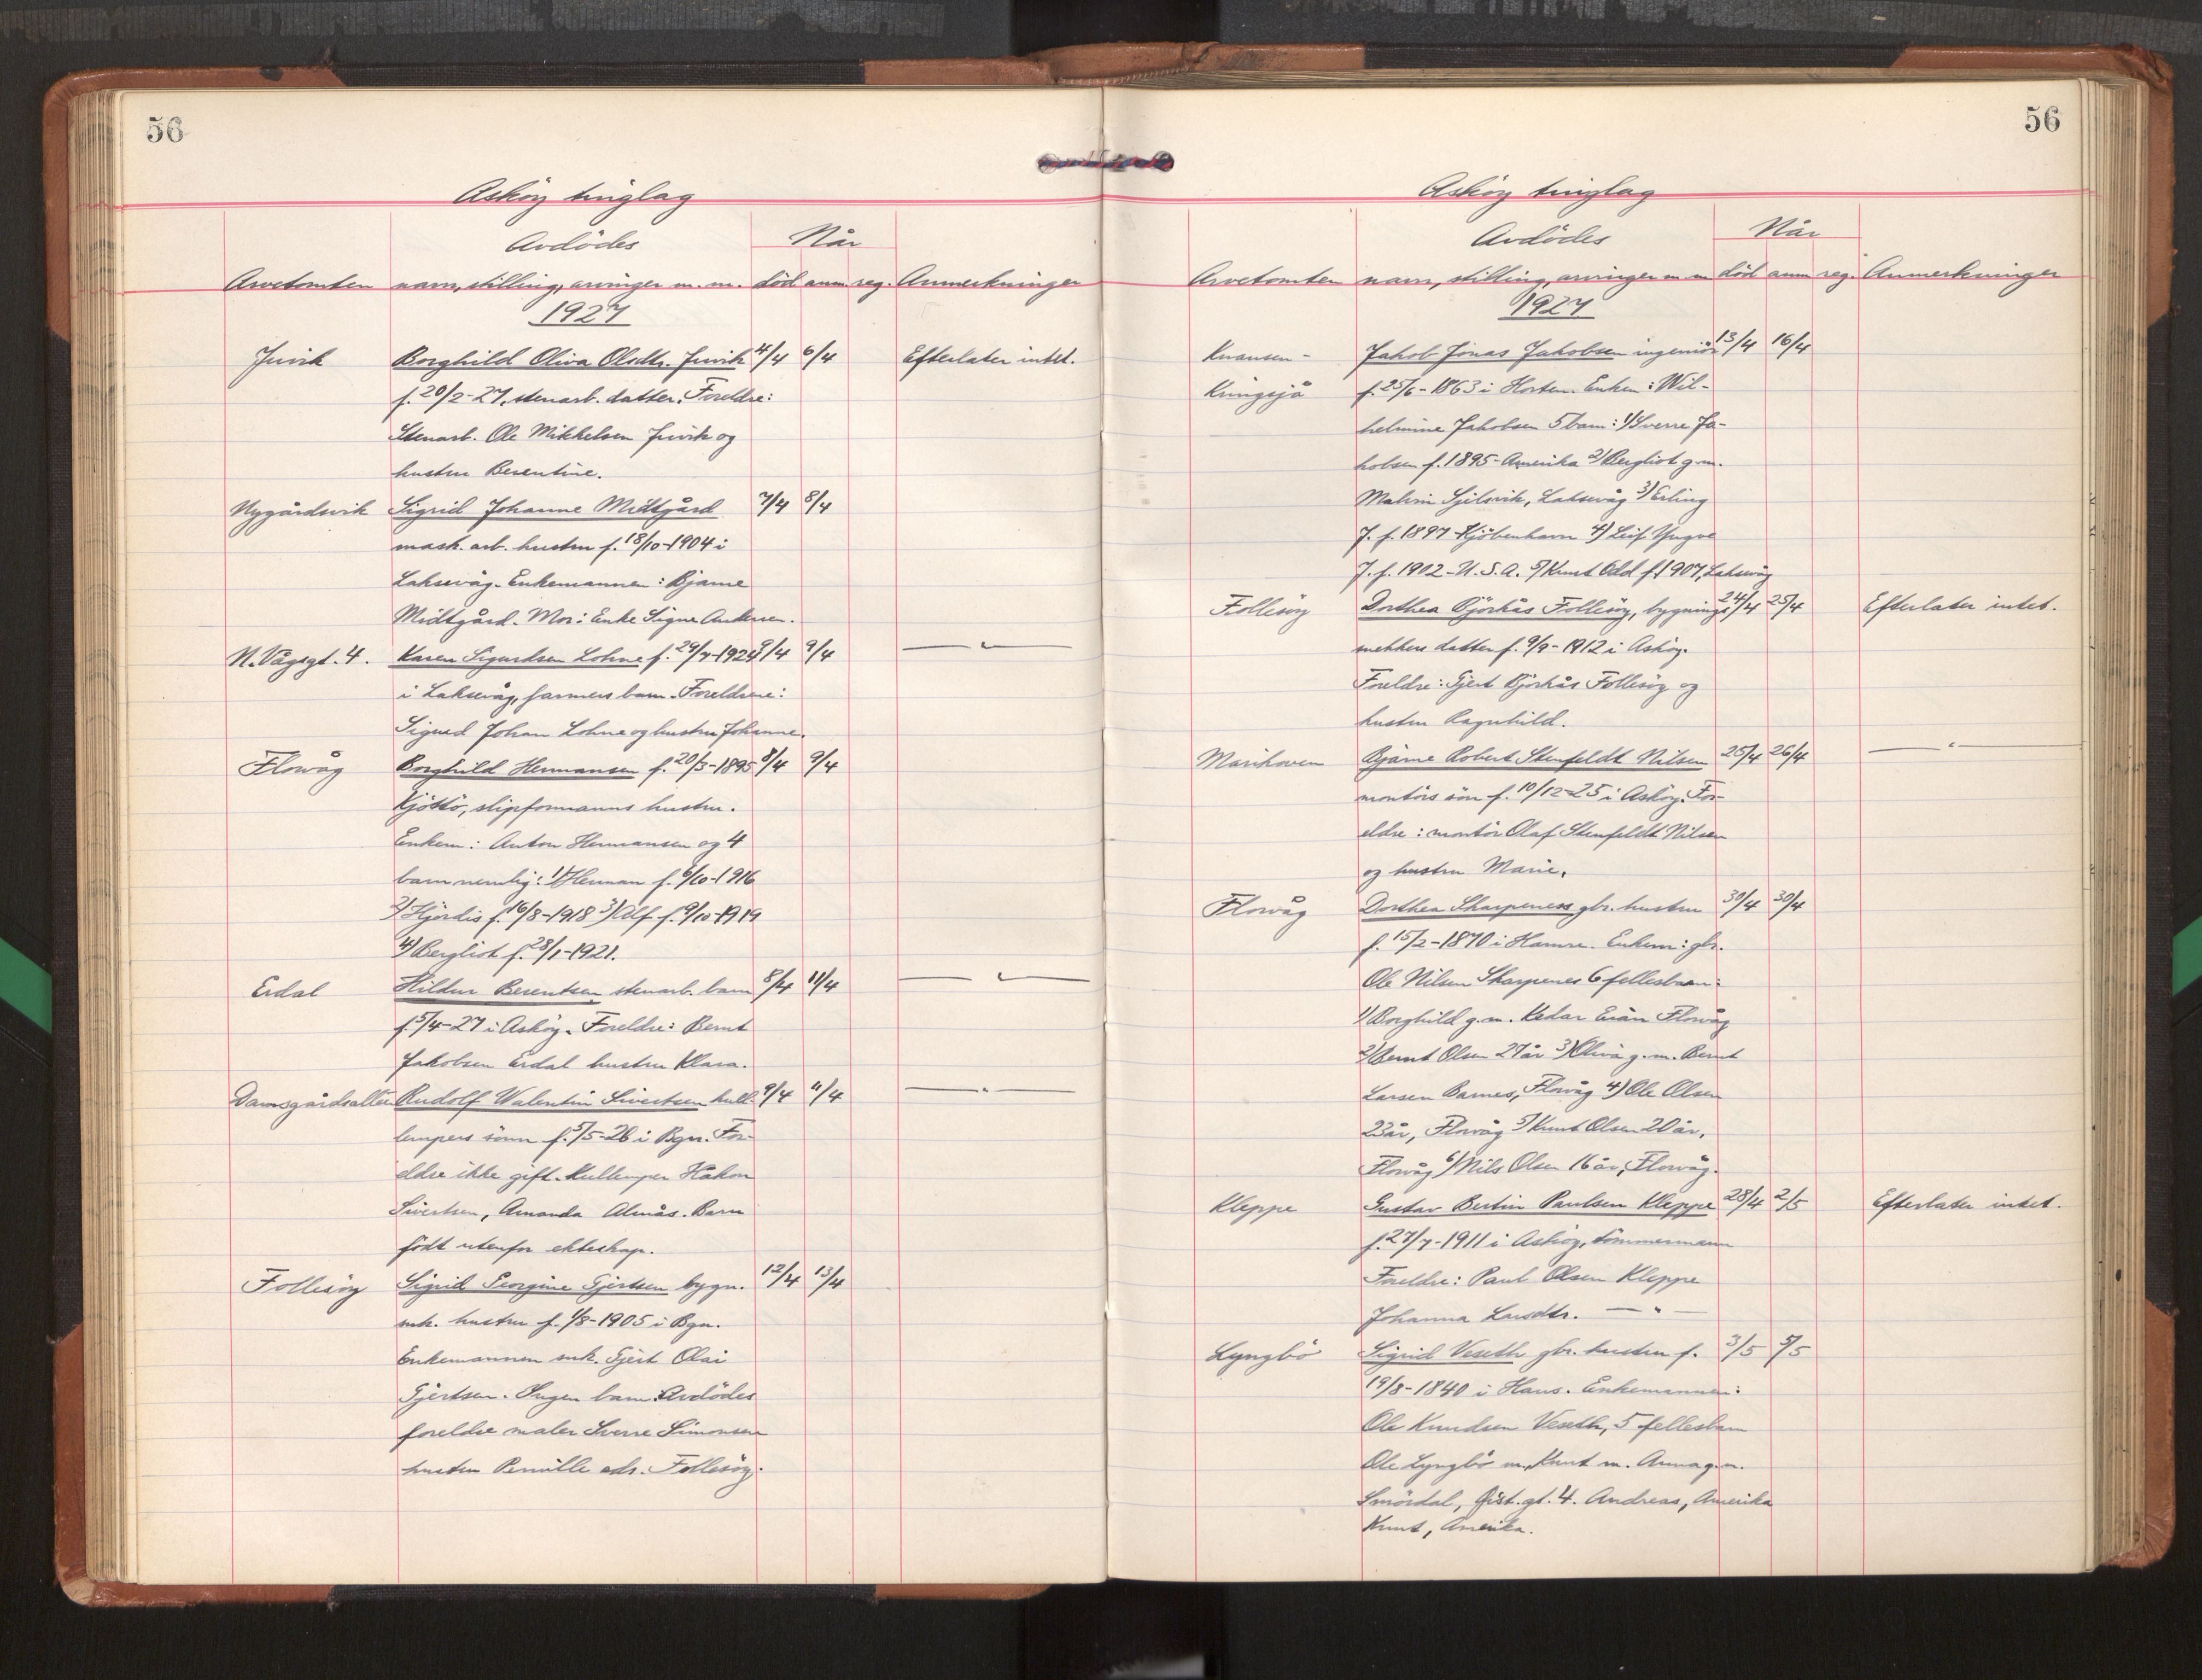 56
Askøy tinglag
Avdödes Når
Arvetomten navn, stilling, arvinger m.m. död anm reg. Anmerkninger
1927
Juvik Borghild Oliva Olsdtr. Juvik 4/4 6/4 Efterlater intet.
f. 20/2-27, stenarb. datter. Foreldre:
Stenarb. Ole Mikkelsen Juvik og
hustru Berentine.
Nygårdsvik Sigrid Johanne Midtgård 7/4 8/4
mask. arb. hustru f. 18/10-1904 i
Laksevåg. Enkemannen: Bjarne
Midtgård. Mor: Enke Signe Andersen.
N. Vågsgt. 4. Karen Sigurdsen Lohne f. 29/7-1924 9/4 9/4 — " —
i Laksevåg, farmers barn. Foreldrene:
Sigurd Johan Lohne og hustru Johanne.
Flowåg Borghild Hermansen f. 20/3-1895 8/4 9/4
Kjöttö, slipformanns hustru.
Enkem: Anton Hermansen og 4
barn nemlig: 1) Herman f. 6/10-1916
2) Hjördis f. 16/8-1918 3) Alf f. 9/10-1919
4) Bergliot f. 28/1-1921.
Erdal Hildur Berentsen stenarb. barn 8/4 11/4 — " —
f. 5/4-27 i Askøy. Foreldre: Bernt
Jakobsen Erdal hustru Klara.
Damsgårdsalleen Rudolf Walentin Sivertsen kull 9/4 11/4 — " —
lempers sönn f. 5/5-26 i Bgn. For-
eldre ikke gift. Kullemper Håkon
Sivertsen, Amanda Almås. Barn
födt utenfor ekteskap.
Follesøy Sigrid Georgine Gjertsen bygn. 12/4 13/4
snk. hustru f. 1/8-1905 i Bgn.
Enkemannen snk. Gjert Olai
Gjertsen. Ingen barn. Avdödes
foreldre maler Sverre Simonsen
hustru Pernille adr. Follesøy.
56
Askøy tinglag
Avdödes Når
Arvetomten navn, stilling, arvinger m m död anm reg. Anmerkninger
1927
Jakob Jonas Jakobsen ingeniör 13/4 16/4
Kringsjå f. 25/6-1863 i Horten. Enken: Wil-
helmine Jakobsen 5 barn: 1) Sverre Ja-
kobsen f. 1895-Amerika 2) Bergliot g.m.
Malvin Laksevåg 3) Erling
J. f. 1897 Kjöbenhavn 4) Leif Yngve
J. f. 1902-U.S.A. 5) Knut Odd f. 1907, Laksevåg
Follesøy Dorthea Björkås Follesøy, bygnings 24/4 25/4 Efterlater intet.
snekkers datter f. 9/9-1912 i Askøy.
Foreldre: Gjert Björkås Follesøy og
hustru Ragnhild.
Marikoven Bjarne Robert Stenfeldt Nilsen 25/4 26/4 — " —
montörs sön f. 10/12-25 i Askøy. For-
eldre: montör Olaf Stenfeldt Nilsen
og hustru Marie.
Flowåg Dorthea Skarpenes gbr. hustru 30/4 30/4
f. 15/2-1870 i Hamre. Enkem: gbr.
Ole Nilsen Skarpenes 6 fellesbarn:
1) Borghild g.m. Kedar Flowåg
2) Bernt Olsen 27 år 3) Oliva g.m. Bernt
Larsen Barnes, Flowåg 4) Ole Olsen
23 år, Flowåg 5) Knut Olsen 20 år,
Flowåg 6) Nils Olsen 16 år, Flowåg.
Kleppe Gustav Bertin Paulsen Kleppe 28/4 2/5 Efterlater intet.
f. 27/7-1911 i Askøy, tömmermann
Foreldre: Paul Olsen Kleppe
Johanna Larsdtr. — " —
Lyngbö Sigrid Veseth gbr. hustru f. 3/5 5/5
19/8-1840 i Haus. Enkemannen:
Ole Knudsen Veseth, 5 fellesbarn
Ole Lyngbö m., Knut m. Anna g.m.
Smördal, gt. 4. Andreas, Amerika
Knut, Amerika.